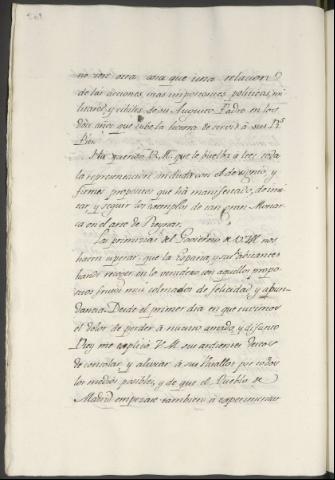 no son otra cosa que una relacion
de las acciones mas importantes politicas, mi
litares, y civiles de su Augusto Padre en los
años que tube la honra de servir à sus R.s
Pies.
Ha querido V. M. que le buelva à leer toda
la representacion sin duda con el designio, y
firmes propositos que ha manifestado, de imi
tar, y seguir los exemplos de tan gran Monar
ca en el arte de Reynar.
Las primicias del Govierno de V. M. nos
hacen esperar, que la España, y sus habitantes
han de recoger en lo venidero con aquellos propo
sitos frutos mui colmados de felicidad, y abun
dancia. Desde el primer dia en que tuvimos
el dolor de perder à nuestro amado, y difunto
Rey me explicó V. M. sus ardientes deseos
de consolar y aliviar à sus Vasallos por todos
los medios posibles, y de que el Pueblo de
Madrid empezase tambien à experimentar